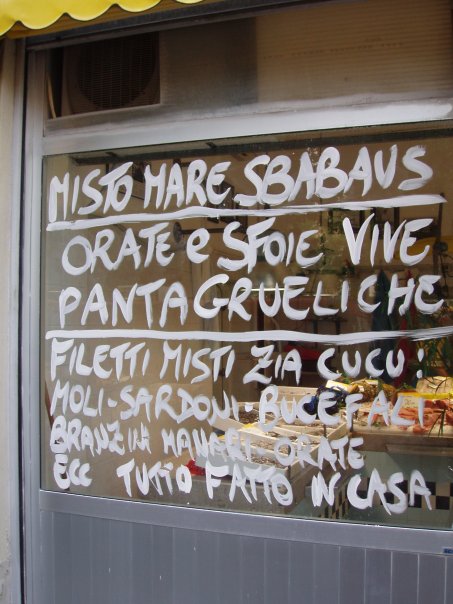 MISTO MARE SBABAUS
ORATE e SFOIE VIVE
PANTAGRUELICHE
FILETTI MISTI ZIA CUCU:
MOLI-SARDONI-BUCEFALI
BRANZINI MANNARI-ORATE
ECC TUTTO FATTO IN CASA